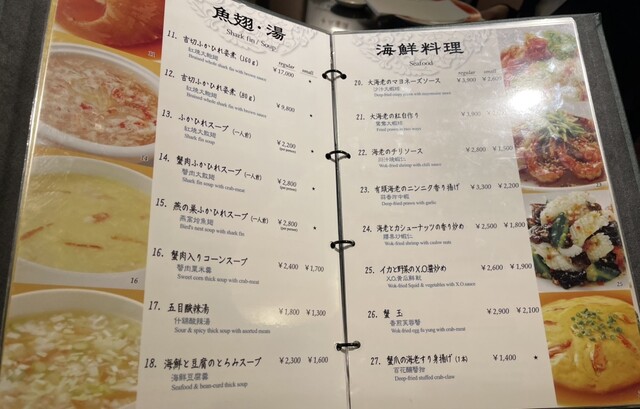 魚翅・湯
Shark fin / Soup
regular small
11. 吉切ふかひれ姿煮 (160g) ¥17,000
紅燒大鮑翅
Braised whole shark fin with brown sauce
12. 吉切ふかひれ姿煮 (80g) ¥9,800 *
Braised whole shark fin with brown sauce
13. ふかひれスープ (一人前) ¥2,200 *
(per person)
Shark fin soup
14. 蟹肉ふかひれスープ (一人前) ¥2,800 *
蟹肉大散翅 (per person)
Shark fin soup with crab-meat
15. 燕の巣ふかひれスープ (一人前) ¥2,800 *
(per person)
Bird's nest soup with shark fin
16. 蟹肉入りコーンスープ ¥2,400 ¥1,700
蟹肉粟米羹
Sweet corn thick soup with crab-meat
17. 五目酸辣湯 ¥1,800 ¥1,300
什錦酸辣湯
Sour & spicy thick soup with assorted meats
18. 海鮮と豆腐のとろみスープ ¥2,300 ¥1,600
海鮮豆腐羹
Seafood & bean-curd thick soup
海鮮料理
Seafoods
regular small
20. 大海老のマヨネーズソース ¥3,900
Deep-fried crispy prawn with mayonnaise sauce
21. 大海老の紅白作り
22. 海老のチリソース ¥2,800 ¥1,500
Wok-fried shrimp with chili sauce
23. 有頭海老のニンニク香り揚げ ¥3,300 ¥2,200
蒜香炸中蝦
Deep-fried prawn with garlic
24. 海老とカシューナッツの香り炒め ¥2,500 ¥1,800
Wok-fried shrimp with cashew nuts
25. イカと野菜のX.O醤炒め ¥2,600 ¥1,900
Wok-fried Squid & vegetables with X.O sauce
26. 蟹玉 ¥2,900 ¥2,100
香煎芙蓉蟹
Wok-fried egg fu yung with crab-meat
27. 蟹爪の海老すり身揚げ (1本) ¥1,400 *
百花釀蟹拑
Deep-fried stuffed crab-claw
14
16
25